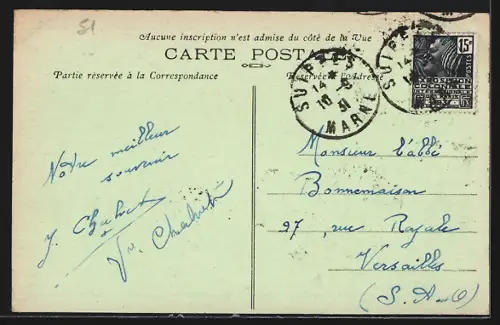 51
Aucune inscription n'est admise du côté de la Vue
CARTE POSTALE
Partie réservée à la Correspondance
Réservée à l'Adresse
SUIPPES
14 *
10 -6
31
MARNE
SUIPPES
14
10
15c
POSTES
EXPOSITION
COLONIALE
Notre meilleur
souvenir
Monsieur l'abbé
Bonnemaison
27, rue Royale
Versailles
(S. &O)